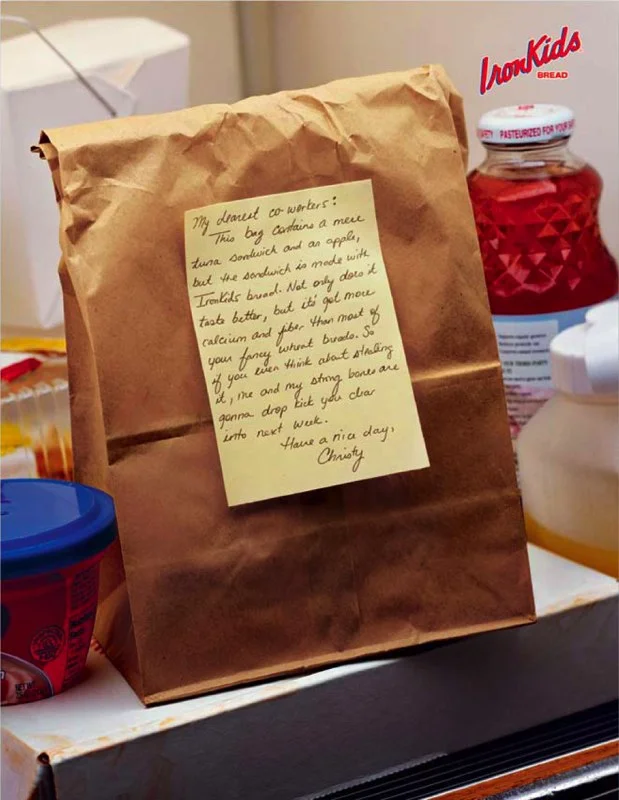 IronKids
BREAD
SAFETY PASTEURIZED FOR YOUR SA
My dearest co-workers:
This bag contains a mere
tuna sandwich and an apple,
but the sandwich is made with
Ironkids bread. Not only does it
taste better, but it's got more
calcium and fiber than most of
your fancy wheat breads. So
if you even think about stealing
it, me and my strong bones are
gonna drop kick you clear
into next week.
Have a nice day,
Christy